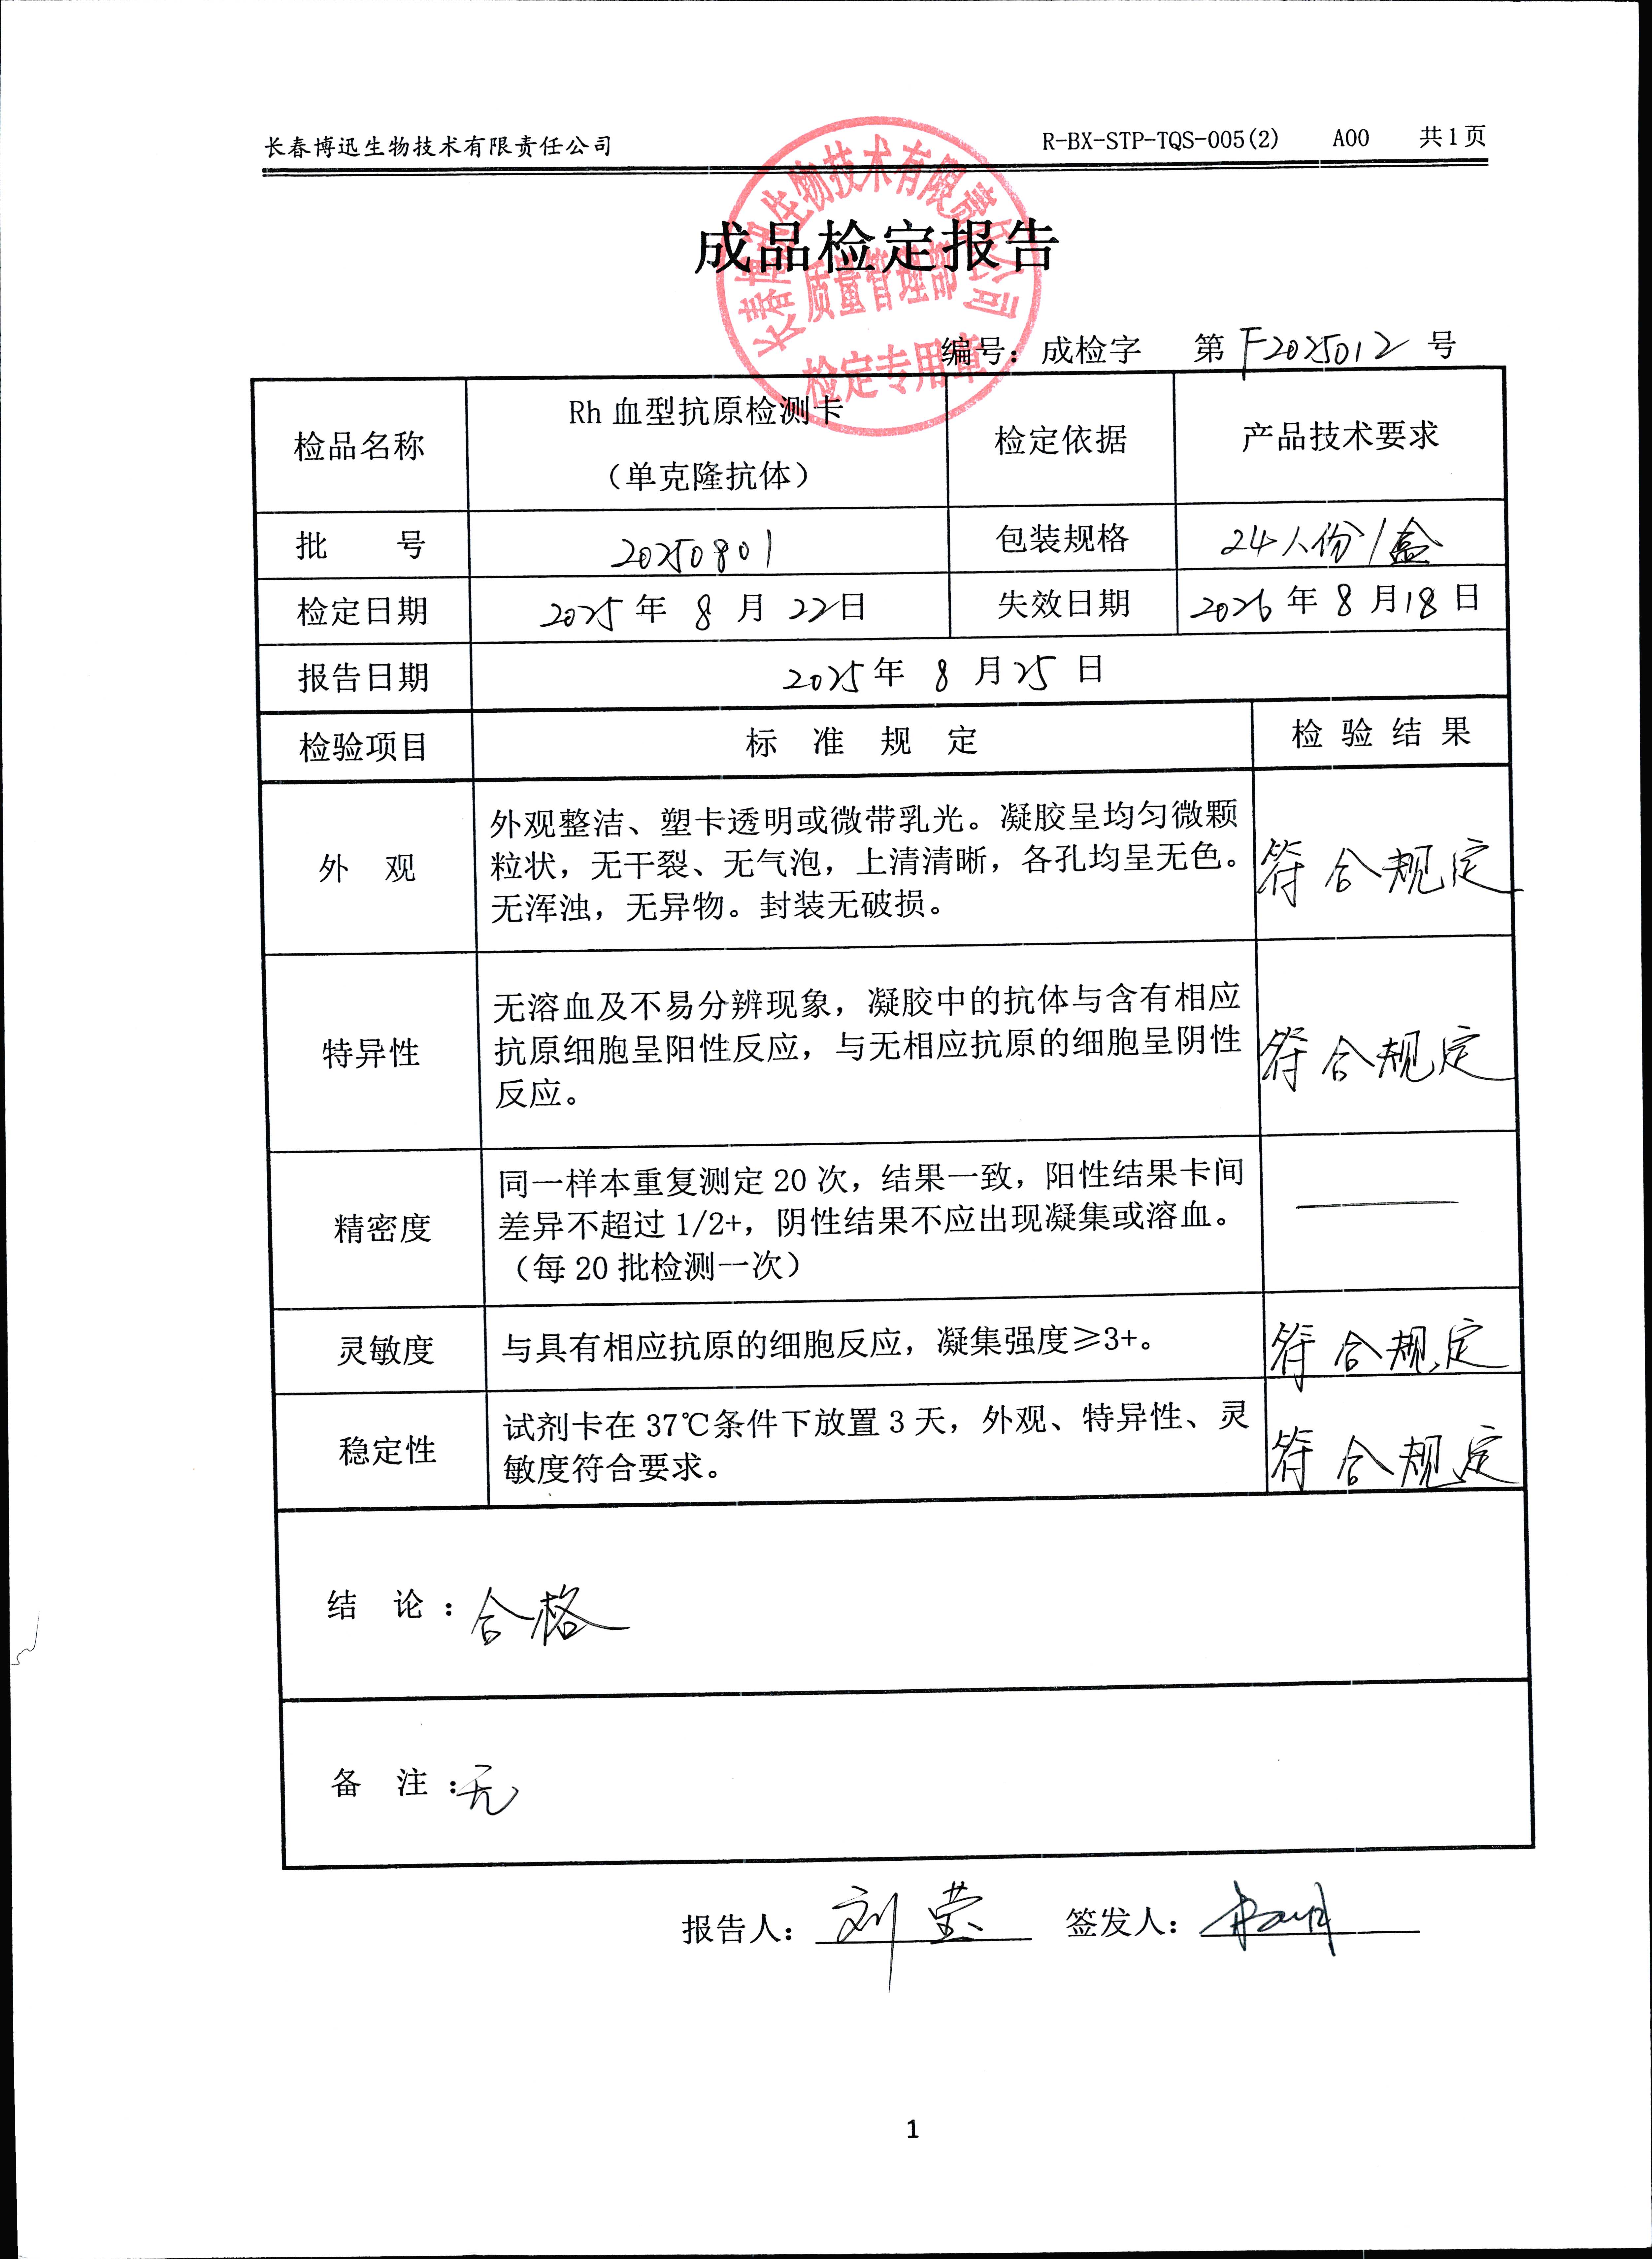 长春博迅生物技术有限责任公司 R-BX-STP-TQS-005(2) A00 共1页
成品检定报告
长春博迅生物技术有限责任公司
质量管理部
检定专用章
编号：成检字 第 F2025012 号
检品名称 Rh 血型抗原检测卡 （单克隆抗体） 检定依据 产品技术要求
批 号 20250801 包装规格 24人份/盒
检定日期 2025年 8 月 22日 失效日期 2026 年 8 月18日
报告日期 2025年 8 月25 日
检验项目 标 准 规 定 检 验 结 果
外 观
外观整洁、塑卡透明或微带乳光。凝胶呈均匀微颗
粒状，无干裂、无气泡，上清清晰，各孔均呈无色。
无浑浊，无异物。封装无破损。
符合规定
特异性
无溶血及不易分辨现象，凝胶中的抗体与含有相应
抗原细胞呈阳性反应，与无相应抗原的细胞呈阴性
反应。
符合规定
精密度
同一样本重复测定 20 次，结果一致，阳性结果卡间
差异不超过 1/2+，阴性结果不应出现凝集或溶血。
（每 20 批检测一次）
———
灵敏度 与具有相应抗原的细胞反应，凝集强度≥3+。 符合规定
稳定性
试剂卡在 37℃条件下放置 3 天，外观、特异性、灵
敏度符合要求。
符合规定
结 论：合格
备 注：无
报告人：刘莹 签发人：
1